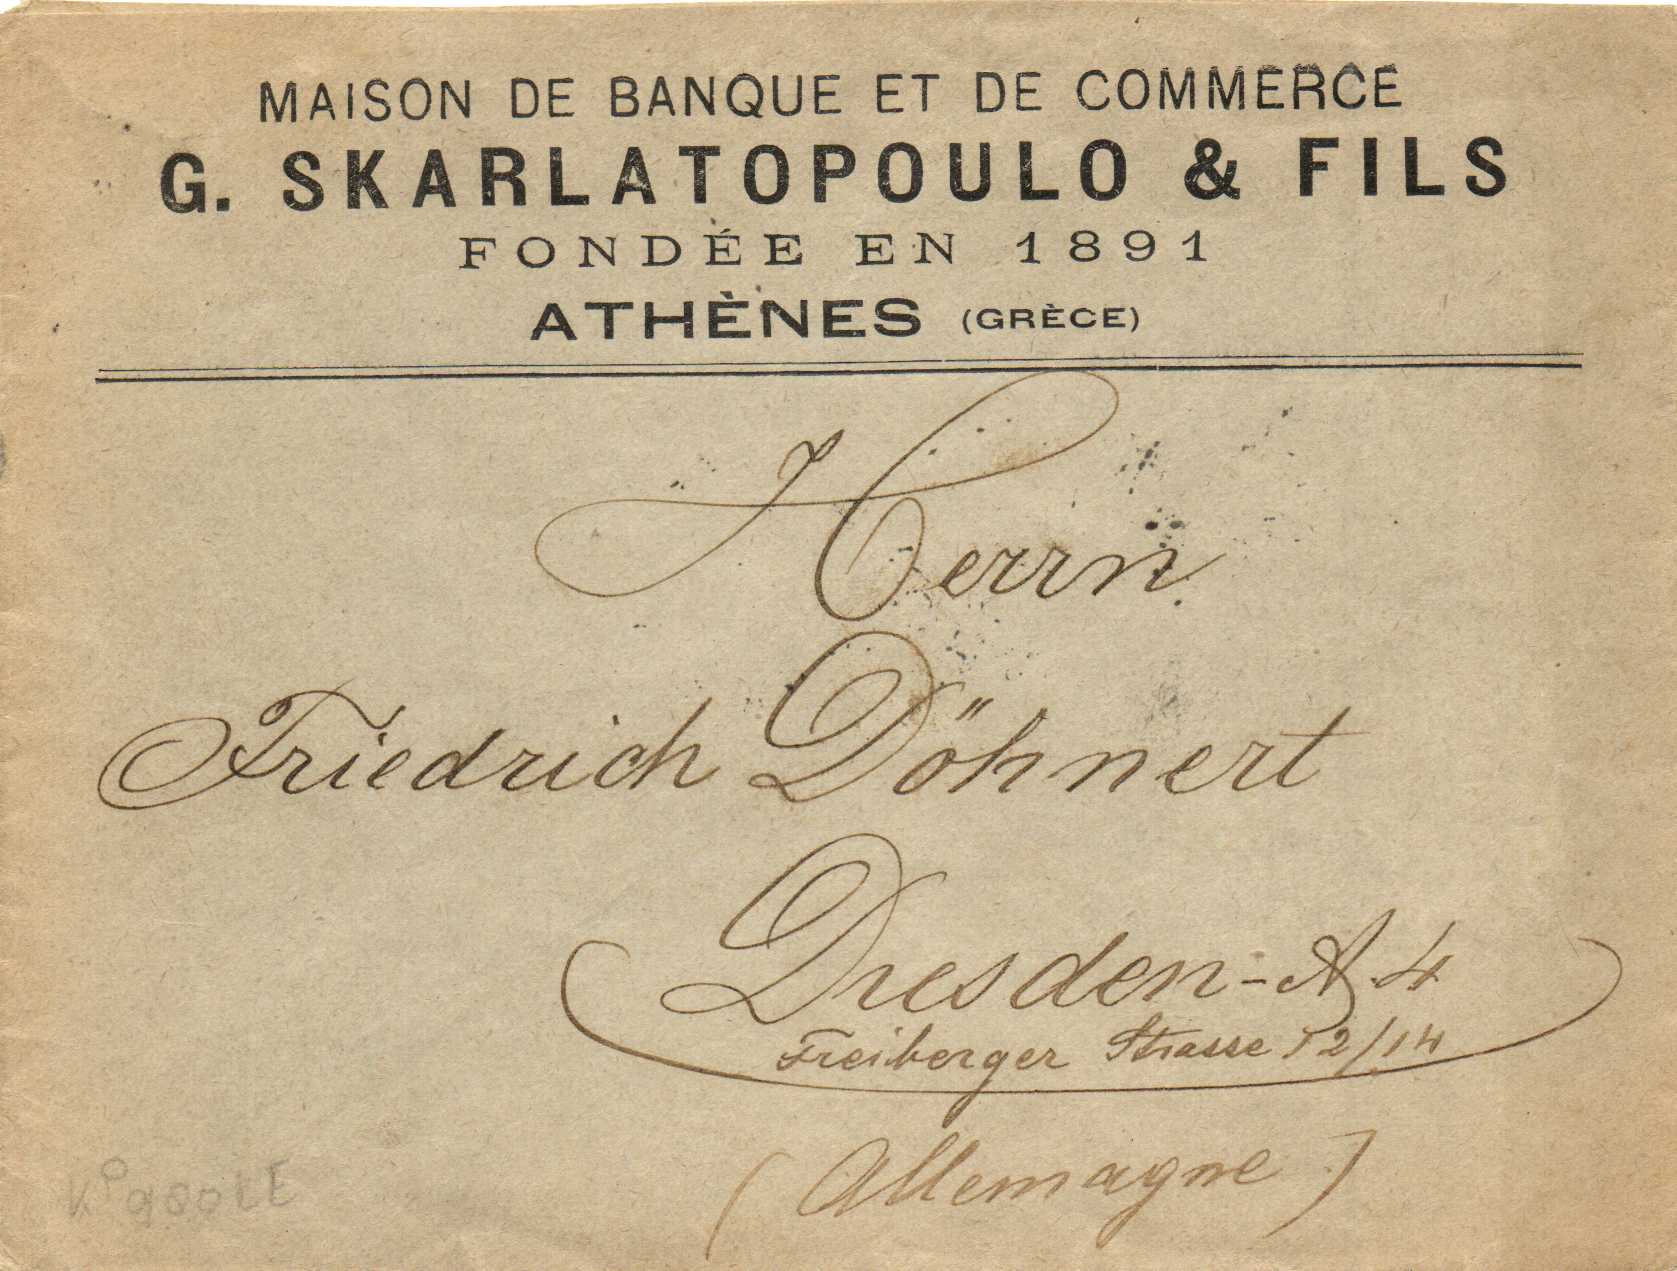 MAISON DE BANQUE ET DE COMMERCE
G. SKARLATOPOULO & FILS
FONDÉE EN 1891
ATHÈNES (GRÈCE)
Herrn
Friedrich Döhnert
Dresden-A. 4
Freiberger Strasse 12/14
(Allemagne)